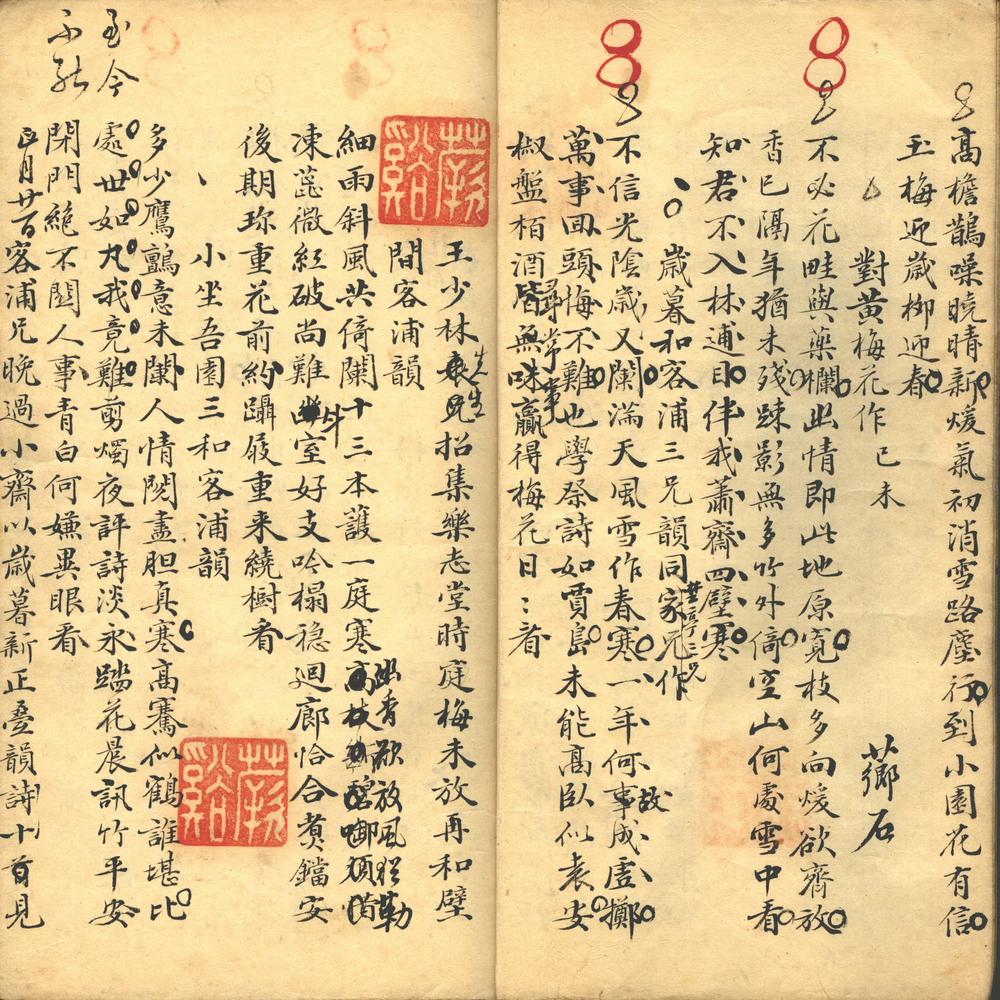 高檐鵲噪曉晴新煖氣初消雪路塵行到小園花有信
玉梅迎歲柳迎春
對黃梅花作 己未
薌石
不必花畦與藥欄此情即此地原寬枝多向煖欲齊放
香已隔年猶未殘踈影無多竹外倚空山何處雪中看
知君不入林逋目伴我蕭齋四壁寒
歲暮和客浦三兄韻同家兄作
不信光陰歲又闌滿天風雪作春寒一年何事成虛擲
故
萬事回頭悔不難也學祭詩如賈島未能高臥似袁安
椒盤栢酒皆無味贏得梅花日〻看
尋常事
王少林兄招集樂志堂時庭梅未放再和壁
先生
間客浦韻
細雨斜風共倚闌十三本護一庭寒
幽香欲放風猶勒
凍蕊微紅破尚難室好支吟榻穩迴廊恰合煑鐺安
斗
後期珎重花前約躡屐重来繞樹看
小坐吾園三和客浦韻
多少鷹鸇意未闌人情閱盡胆真寒高騫似鶴誰堪比
處世如丸我竟難剪燭夜評詩淡永踏花晨訊竹平安
閉門絶不關人事青白何嫌異眼看
至今
不能
正月廿百客浦兄晚過小齋以歲暮新正叠韻詩十首見